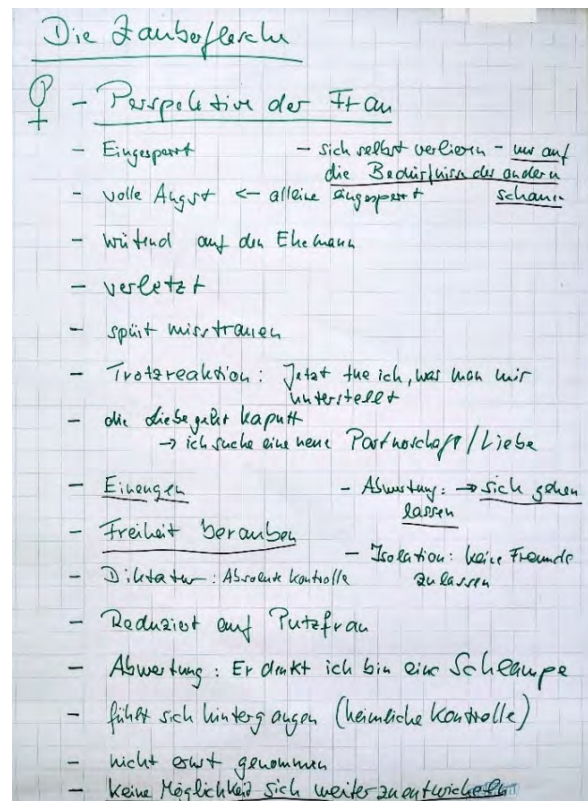 Die Zauberflasche
♀ - Perspektive der Frau
- Eingesperrt
- sich selbst verlieren - nur auf
die Bedürfnisse der andern
schauen
- volle Angst ← alleine eingesperrt
- wütend auf den Ehemann
- verletzt
- spürt misstrauen
- Trotzreaktion: Jetzt tue ich, was man mir
unterstellt
- die Liebe geht kaputt
→ ich suche eine neue Partnerschaft / Liebe
- Einengen
- Abwertung: → sich gehen
lassen
- Freiheit berauben
- Isolation: keine Freunde
zulassen
- Diktatur: Absolute Kontrolle
- Reduziert auf Putzfrau
- Abwertung: Er denkt ich bin eine Schlampe
- fühlt sich hintergangen (heimliche Kontrolle)
- nicht ernst genommen
- keine Möglichkeit sich weiterzuentwickeln